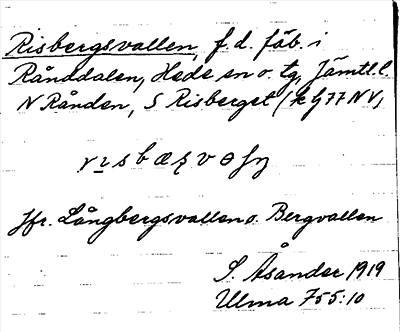 Risbergsvallen, f.d. fäb. i
Rånddalen, Hede sn o. tg, Jämtl. l.
N Rånden, S Risberget (k G 77 NV)
Jfr. Långbergsvallen o. Bergvallen
S. Åsander 1919
Ulma 755:10